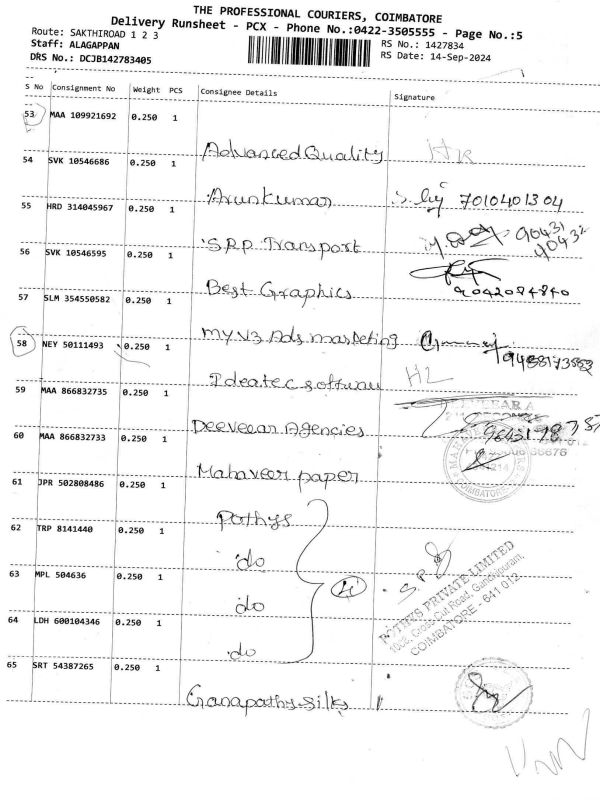 THE PROFESSIONAL COURIERS, COIMBATORE
Delivery Runsheet - PCX - Phone No.:0422-3505555 - Page No.:5
Route: SAKTHIROAD 1 2 3
RS No.: 1427834
Staff: ALAGAPPAN
RS Date: 14-Sep-2024
DRS No.: DCJB142783405
S No Consignment No Weight PCS Consignee Details Signature
53 MAA 109921692 0.250 1
Advanced Quality
54 SVK 10546686 0.250 1
Arunkumar 7010401304
55 HRD 314045967 0.250 1
S.R.P Transport
56 SVK 10546595 0.250 1
Best Graphics 9042084840
57 SLM 354550582 0.250 1
myv3 Ads marketing
58 NEY 50111493 0.250 1
Ideatec software
59 MAA 866832735 0.250 1
Deeveear Agencies
60 MAA 866832733 0.250 1
Mahaveer paper
61 JPR 502808486 0.250 1
Pothys
62 TRP 8141440 0.250 1
do
63 MPL 504636 0.250 1
do
4
S.P
POTHYS PRIVATE LIMITED
Cross Cut Road, Gandhipuram,
COIMBATORE - 641 012
64 LDH 600104346 0.250 1
do
65 SRT 54387265 0.250 1
Ganapathy silks